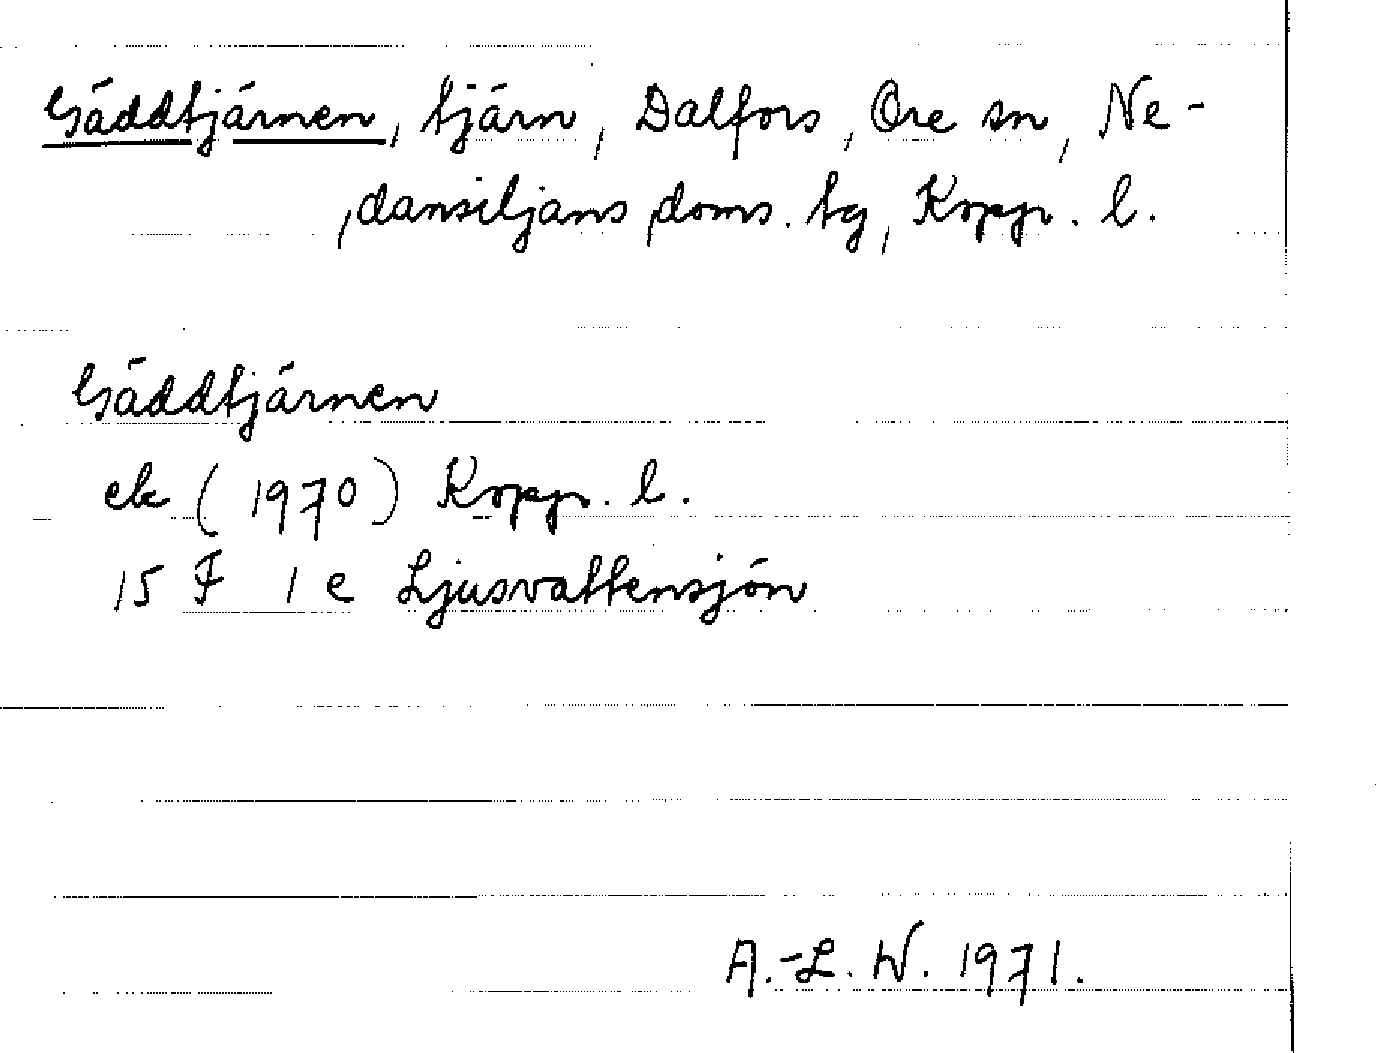 Gäddtjärnen, tjärn, Dalfors, Ore sn, Ne-
dansiljans doms. tg, Kopp. l.
Gäddtjärnen
ek (1970) Kopp. l.
15 F 1 e Ljusvattensjön
A.-L. W. 1971.